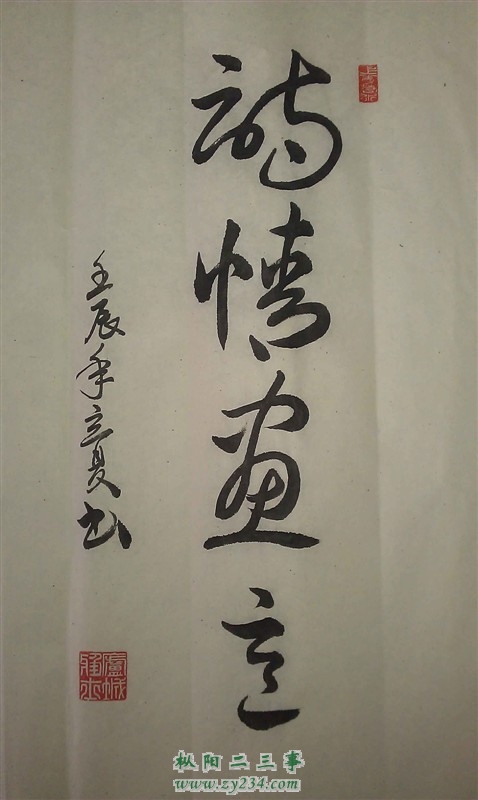 詩情畫意
壬辰年立夏書
枞阳二三事
www.zy234.com